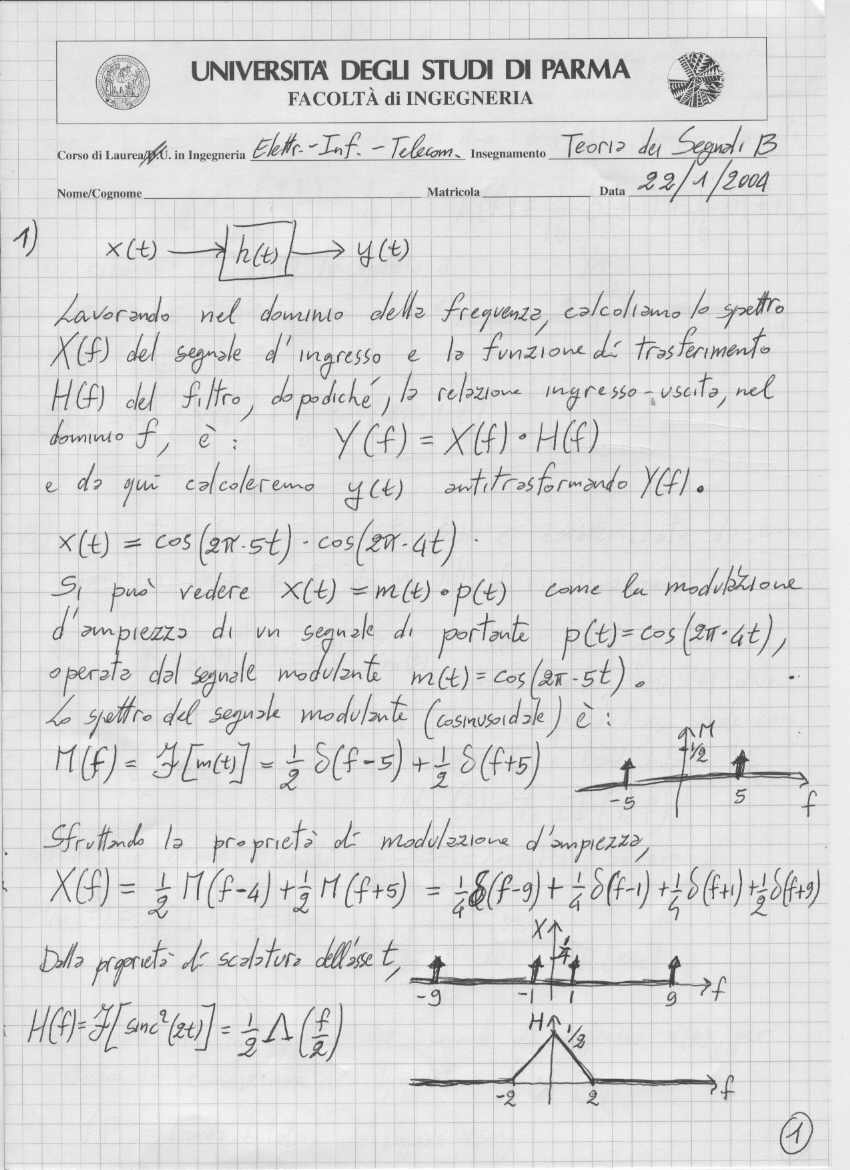 UNIVERSITA' DEGLI STUDI DI PARMA
FACOLTÀ di INGEGNERIA
Corso di Laurea/D.U. in Ingegneria Elettr.-Inf.-Telecom. Insegnamento Teoria dei Segnali B
Nome/Cognome Matricola Data 22/1/2004
1) x(t) → h(t) → y(t)
Lavorando nel dominio della frequenza, calcoliamo lo spettro
X(f) del segnale d'ingresso e la funzione di trasferimento
H(f) del filtro, dopodiché, la relazione ingresso-uscita, nel
dominio f, è: Y(f) = X(f) • H(f)
e da qui calcoleremo y(t) antitrasformando Y(f).
x(t) = cos(2π·5t) · cos(2π·4t) .
Si può vedere x(t) = m(t) • p(t) come la modulazione
d'ampiezza di un segnale di portante p(t) = cos(2π·4t),
operata dal segnale modulante m(t) = cos(2π·5t).
Lo spettro del segnale modulante (cosinusoidale) è:
M(f) = ℱ[m(t)] = 1/2 δ(f-5) + 1/2 δ(f+5)
M
1/2
-5 5 f
Sfruttando la proprietà di modulazione d'ampiezza,
X(f) = 1/2 M(f-4) + 1/2 M(f+5) = 1/4 δ(f-9) + 1/4 δ(f-1) + 1/4 δ(f+1) + 1/2 δ(f+9)
Dalla proprietà di scalatura dell'asse t,
X
1/4
-9 -1 1 9 f
H(f) = ℱ[sinc²(2t)] = 1/2 Λ(f/2)
H
1/2
-2 2 f
1